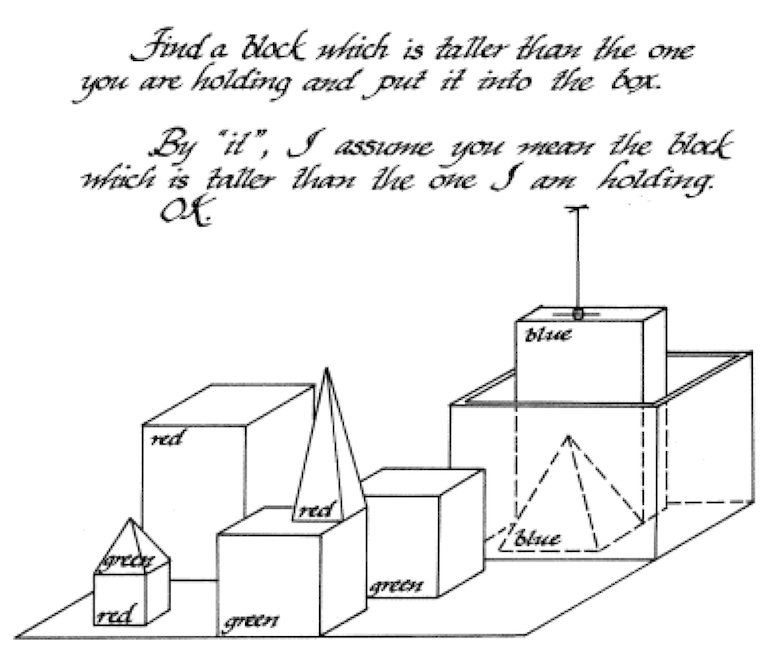 Find a block which is taller than the one
you are holding and put it into the box.
By "it", I assume you mean the block
which is taller than the one I am holding.
OK.
blue
red
red
green
green
blue
red
green